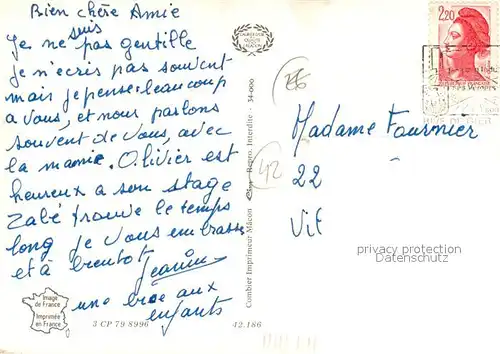 Bien chère Amie
Je ne suis pas gentille
Je n'ecris pas souvent
mais je pense beaucoup
a vous, et nous, parlons
souvent de vous, avec
la mamie. Olivier est
heureux a son stage
Zabé trouve le temps
long je vous embrasse
et à bientot
Jeanine
une bise aux
enfants
Image
de France
Imprimée
en France
3 CP 79 8996
42.186
Combier Imprimeur Mâcon
Repro. Interdite - 34-000
42
2,20
Madame Fournier
22
privacy protection
Datenschutz